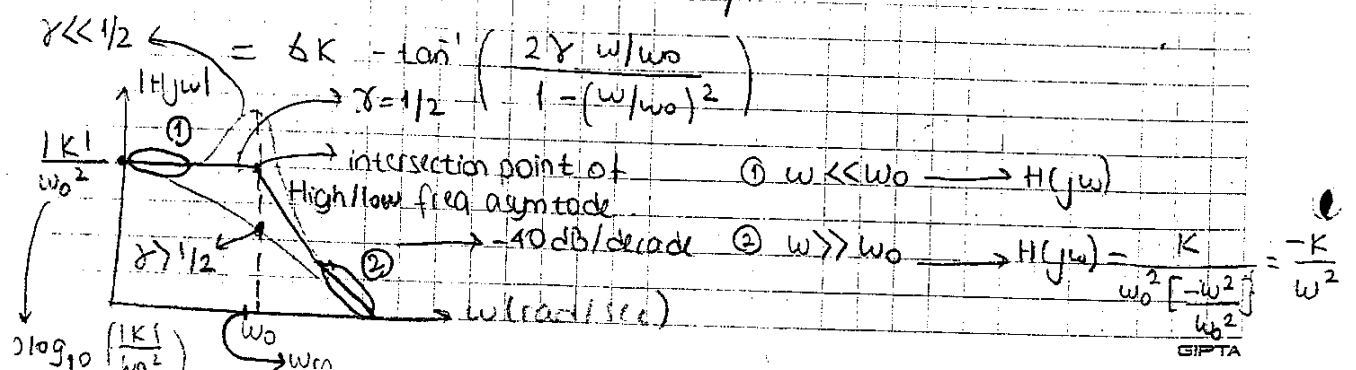 γ<<1/2
= ∡K - tan⁻¹ ( 2γ w/w₀ / 1-(w/w₀)² )
|H(jw)|
γ=1/2
①
|K| / w₀²
intersection point of
High/low freq asymtode
① w<<w₀ → H(jw)
γ>1/2
②
-40dB/decade
② w>>w₀ → H(jw) = K / w₀² [-w²/w₀²] = -K / w²
w(rad/sec)
w₀
log₁₀ (|K| / w₀²)
GIPTA